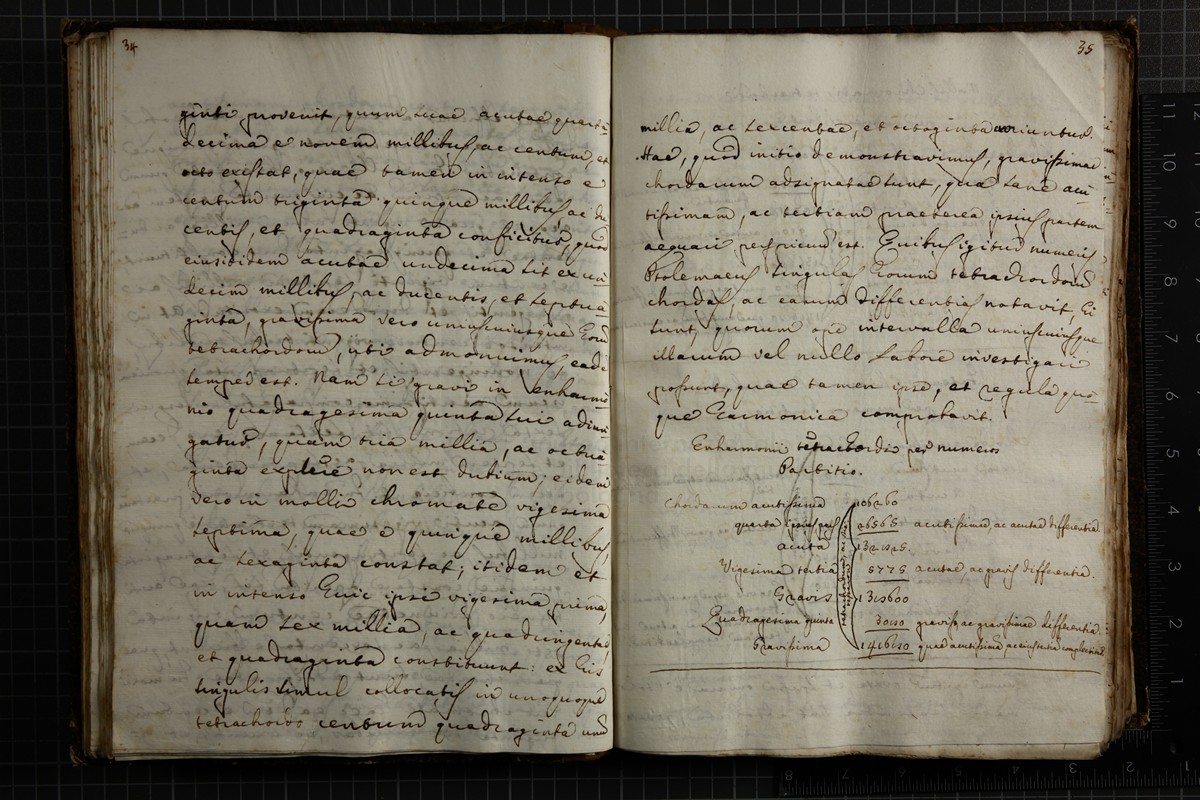 34
ginti provenit, quum suae acutae quarta
decima e novem millibus, ac centum, et
octo existat, quae tamen in intenso e
centum triginta quinque millibus, ac du
centis, et quadraginta conficitur, quod
eiusdidem acutae undecima sit ex un
decim millibus, ac ducentis, et septua
ginta, gravissima vero uniuscuiusque horum
tetrachordorum, uti admonuimus, eade
semper est. Nam si gravi in enharmo
nio quadragesima quinta sui adiun
gatur, quam tria millia, ac octua
ginta explere non est dubium; eidem
vero in molli chromate vigesima
septima, quae e quinque millibus,
ac sexaginta constat; itidem et
in intenso huic ipsi vigesima prima
quam sex millia, ac quadringenta
et quadraginta constituunt: ex his
singulis simul collocatis in unoquoque
tetrachordo centum quadraginta unum
35
millia, ac sexcenta, et octoginta oriuntur.
Hae, quod initio demonstravimus, gravissimae
chordarum adsignatae sunt, quae sane acu
tissimam, ac tertiam praeterea ipsius partem
aequari perspicuum est. Quibus igitur numeris
Ptolemaeus singulas horum tetrachordorum
chordas, ac earum differentias notavit, hi
sunt, quorum ope intervalla uniuscuiusque
illarum vel nullo labore investigari
possunt, quae tamen ipse, et regula quo
que harmonica comprobavit.
Enharmonii tetrachordi per numeros
Partitio.
Chordarum acutissima 106260
quarta ipsius pars 26565 acutissimae, ac acutae differentia.
acuta 132825.
Vigesima tertia 5775 acutae, ac gravis differentia.
Gravis 138600
Quadragesima quinta 3080 gravis, ac gravissimae differentia.
Gravissima 141680 quae acutissimam, ac eius tertiam complectitur